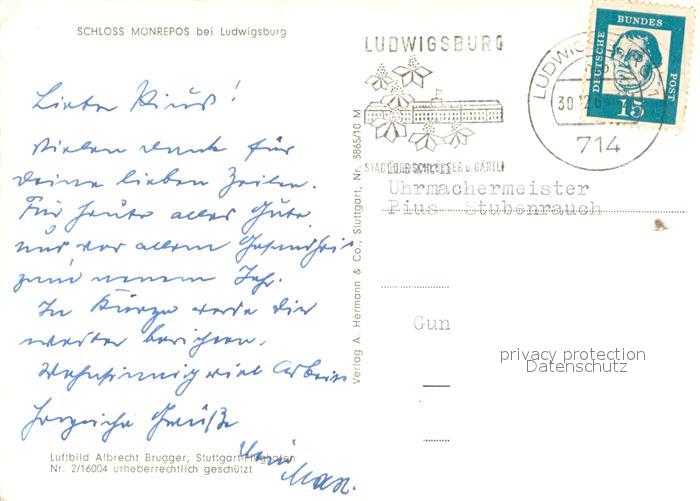 SCHLOSS MONREPOS bei Ludwigsburg
LUDWIGSBURG
STADT DER SCHLÖSSER U. GÄRTEN
LUDWIGSBURG
30.12.6
714
DEUTSCHE BUNDESPOST
15
Lieber Pius!
Vielen Dank für
Deine lieben Zeilen.
Für heute alles Gute
und vor allem Gesundheit
zum neuen Jahr.
In Kürze werde Dir
weiter berichten.
Wahnsinnig viel Arbeit
Herzliche Grüße
Dein
Max.
Verlag A. Hermann & Co., Stuttgart, Nr. 3865/10 M
Uhrmachermeister
Pius Stubenrauch
Gun
privacy protection
Datenschutz
Luftbild Albrecht Brugger, Stuttgart-Flughafen
Nr. 2/16004 urheberrechtlich geschützt